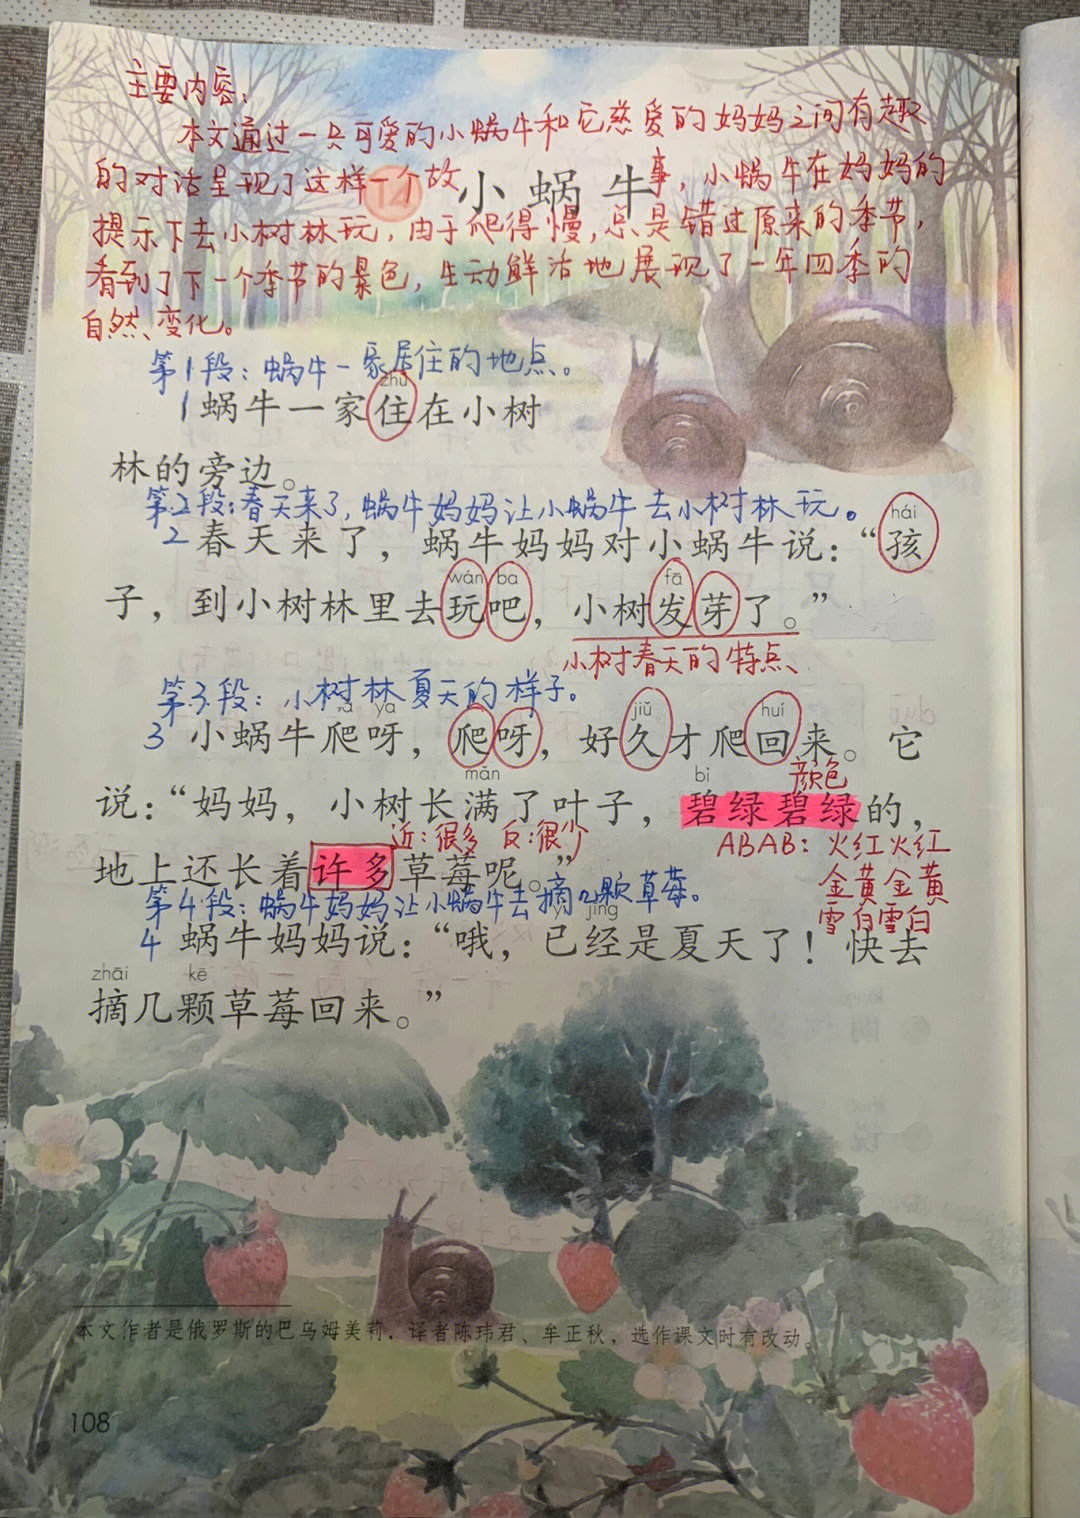 主要内容：
本文通过一只可爱的小蜗牛和它慈爱的妈妈之间有趣
的对话呈现了这样一个故事，小蜗牛在妈妈的
14 小蜗牛
提示下去小树林玩，由于爬得慢，总是错过原来的季节，
看到了下一个季节的景色，生动鲜活地展现了一年四季的
自然变化。
第1段：蜗牛一家居住的地点。
zhù
1 蜗牛一家住在小树
林的旁边。
第2段：春天来了，蜗牛妈妈让小蜗牛去小树林玩。
hái
2 春天来了，蜗牛妈妈对小蜗牛说：“孩
wán ba fā
子，到小树林里去玩吧，小树发芽了。”
小树春天的特点、
第3段：小树林夏天的样子。
pá ya jiǔ huí
3 小蜗牛爬呀，爬呀，好久才爬回来。它
mǎn bì 颜色
说：“妈妈，小树长满了叶子，碧绿碧绿的，
近：很多 反：很少 ABAB：火红火红
地上还长着许多草莓呢。”
金黄金黄
第4段：蜗牛妈妈让小蜗牛去摘几颗草莓。
雪白雪白
yǐ jīng
4 蜗牛妈妈说：“哦，已经是夏天了！快去
zhāi kē
摘几颗草莓回来。”
本文作者是俄罗斯的巴乌姆美莉，译者陈玮君、牟正秋，选作课文时有改动。
108